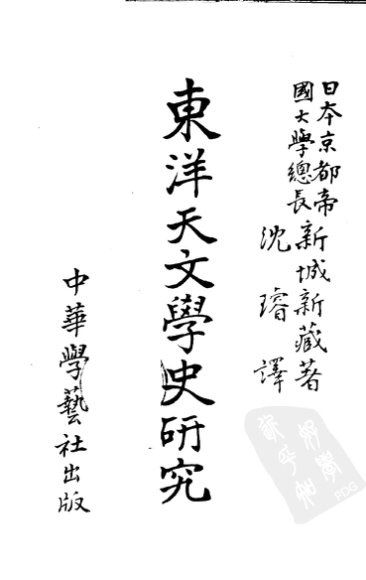 日本京都帝
國大學總長
新城新藏著
沈璿譯
東洋天文學史研究
中華學藝社出版
PDG